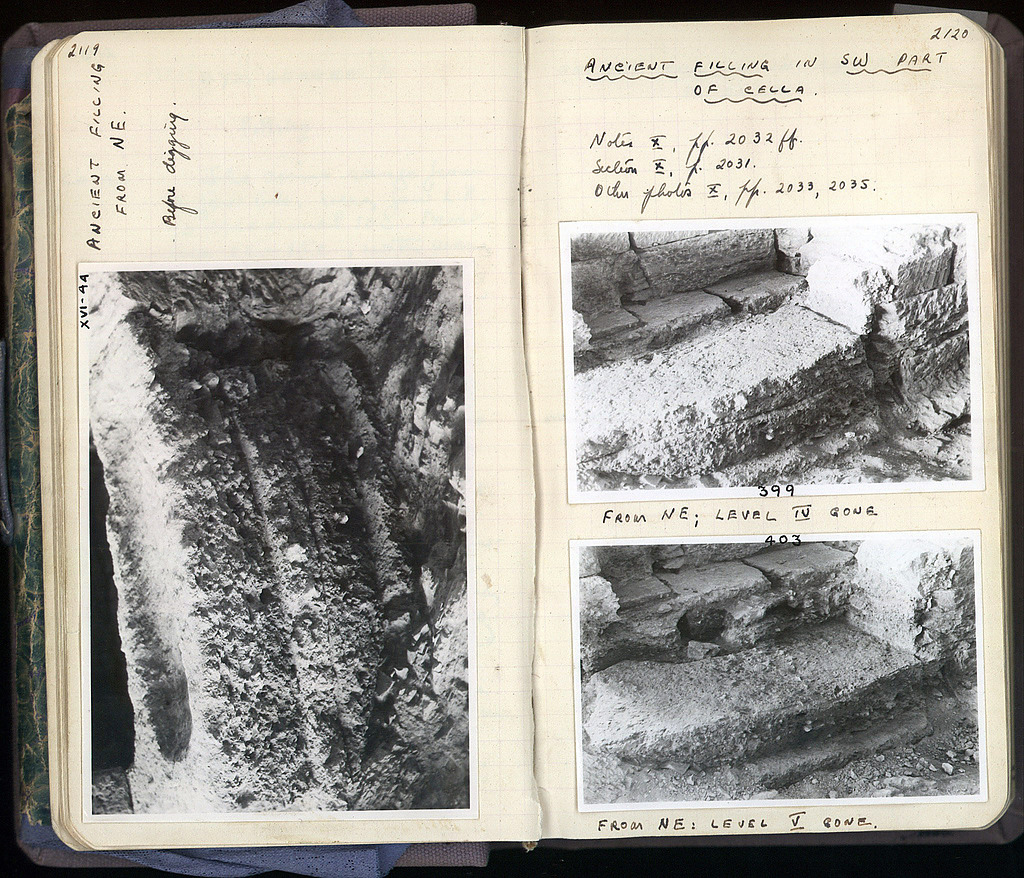 2119
ANCIENT FILLING
FROM NE.
Before digging.
XVI-44
2120
ANCIENT FILLING IN SW PART
OF CELLA.
Notes X, pp. 2032 ff.
Section X, p. 2031.
Other photos X, pp. 2033, 2035.
399
FROM NE; LEVEL IV GONE
403
FROM NE: LEVEL V GONE.